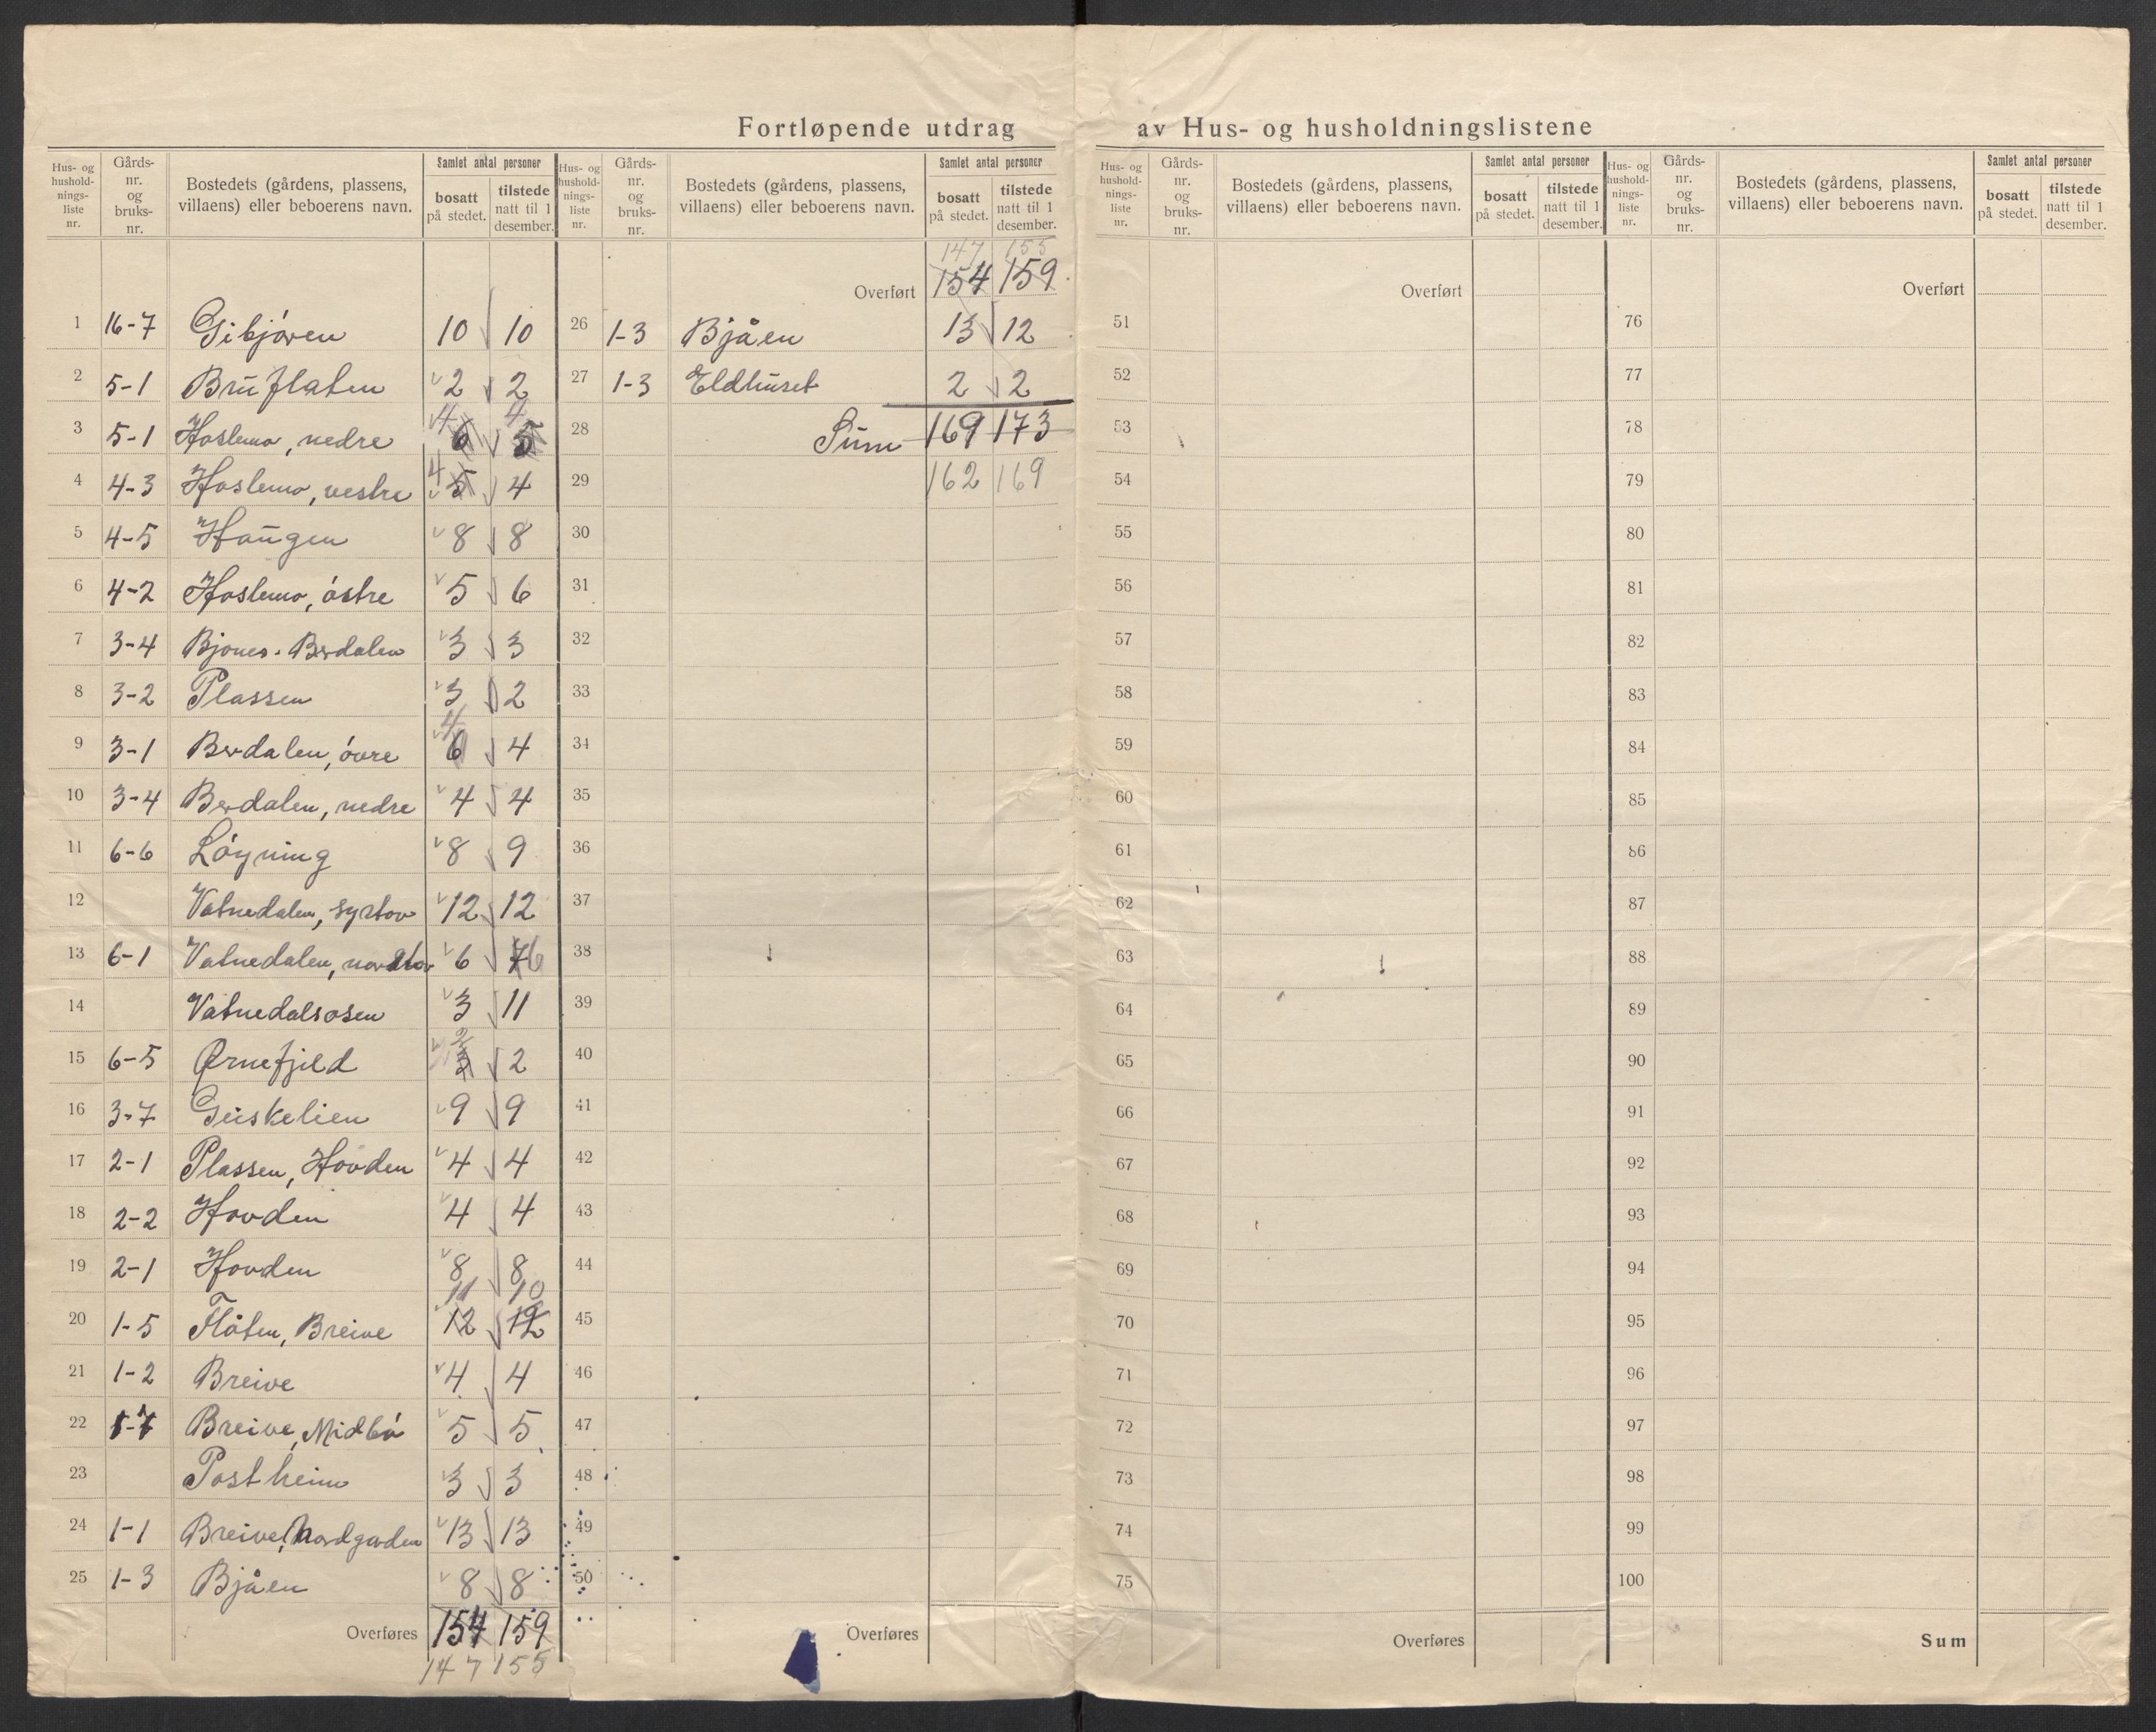 Fortløpende utdrag av Hus- og husholdningslistene
Hus- og hushold- nings- liste nr. | Gårds- nr. og bruks- nr. | Bostedets (gårdens, plassens, villaens) eller beboerens navn. | Samlet antal personer | bosatt på stedet. | tilstede natt til 1 desember.
1 16-7 Gibjøren 10 10
2 5-1 Bruflaten 2 2
3 5-1 Hoslemo, nedre 6 4 5 4
4 4-3 Hoslemo, vestre 5 4 4
5 4-5 Haugen 8 8
6 4-2 Hoslemo, østre 5 6
7 3-4 Bjones-Berdalen 3 3
8 3-2 Plassen 3 2
9 3-1 Berdalen, øvre 6 4 4
10 3-4 Berdalen, nedre 4 4
11 6-6 Løyning 8 9
12 Vatnedalen, syrstov 12 12
13 6-1 Vatnedalen, nordstov 6 7 6
14 Vatnedalsosen 3 11
15 6-5 Ørnefjeld 3 2 2
16 3-7 Guskelien 9 9
17 2-1 Plassen, Hovden 4 4
18 2-2 Hovden 4 4
19 2-1 Hovden 8 8
20 1-5 Flåten, Breive 12 11 12 10
21 1-2 Breive 4 4
22 1-7 Breive, Midbø 5 5
23 Postheim 3 3
24 1-1 Breive, Nordgarden 13 13
25 1-3 Bjåen 8 8
Overføres 154 159
147 155
Hus- og hushold- nings- liste nr. | Gårds- nr. og bruks- nr. | Bostedets (gårdens, plassens, villaens) eller beboerens navn. | Samlet antal personer | bosatt på stedet. | tilstede natt til 1 desember.
147 155
Overført 154 159
26 1-3 Bjåen 13 12
27 1-3 Eldhuset 2 2
28 Sum 169 173
29 162 169
30
31
32
33
34
35
36
37
38
39
40
41
42
43
44
45
46
47
48
49
50
Overføres
Hus- og hushold- nings- liste nr. | Gårds- nr. og bruks- nr. | Bostedets (gårdens, plassens, villaens) eller beboerens navn. | Samlet antal personer | bosatt på stedet. | tilstede natt til 1 desember.
Overført
51
52
53
54
55
56
57
58
59
60
61
62
63
64
65
66
67
68
69
70
71
72
73
74
75
Overføres
Hus- og hushold- nings- liste nr. | Gårds- nr. og bruks- nr. | Bostedets (gårdens, plassens, villaens) eller beboerens navn. | Samlet antal personer | bosatt på stedet. | tilstede natt til 1 desember.
Overført
76
77
78
79
80
81
82
83
84
85
86
87
88
89
90
91
92
93
94
95
96
97
98
99
100
Sum